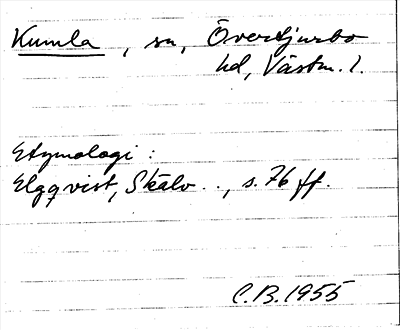 Kumla, sn, Övertjurbo
hd, Västm. l.
Etymologi:
Elgqvist, Skälv.., s. 76 ff.
C.B. 1955